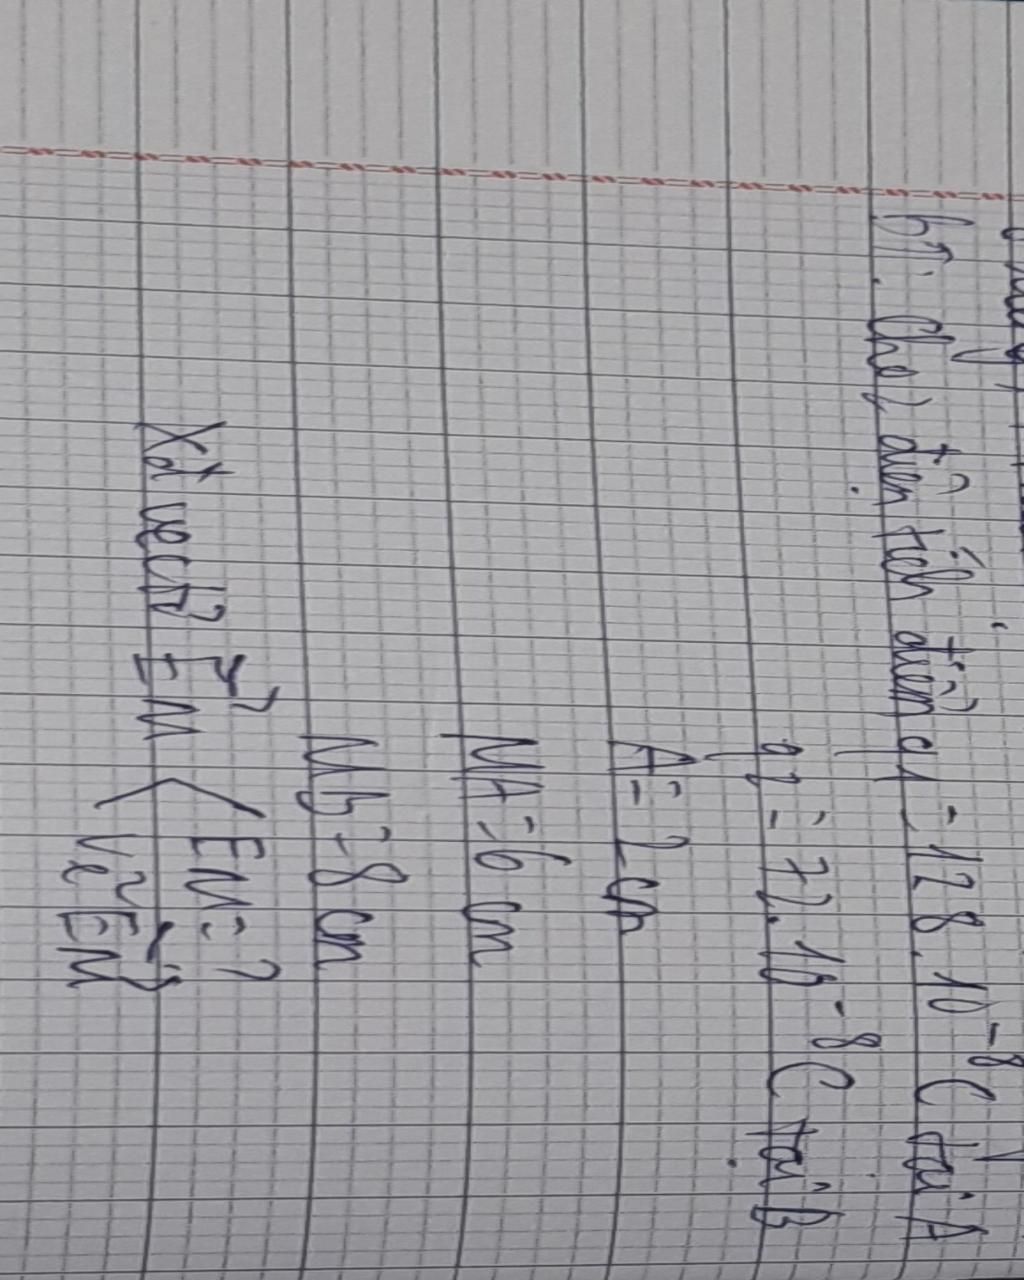 bT. Cho 2 điện tích điểm q1 = 128.10⁻⁸ C tại A
q2 = 72.10⁻⁸ C tại B
A = 2 cm
MA = 6 cm
MB = 8 cm
Xđ vectơ EM
EM = ?
vẽ EM